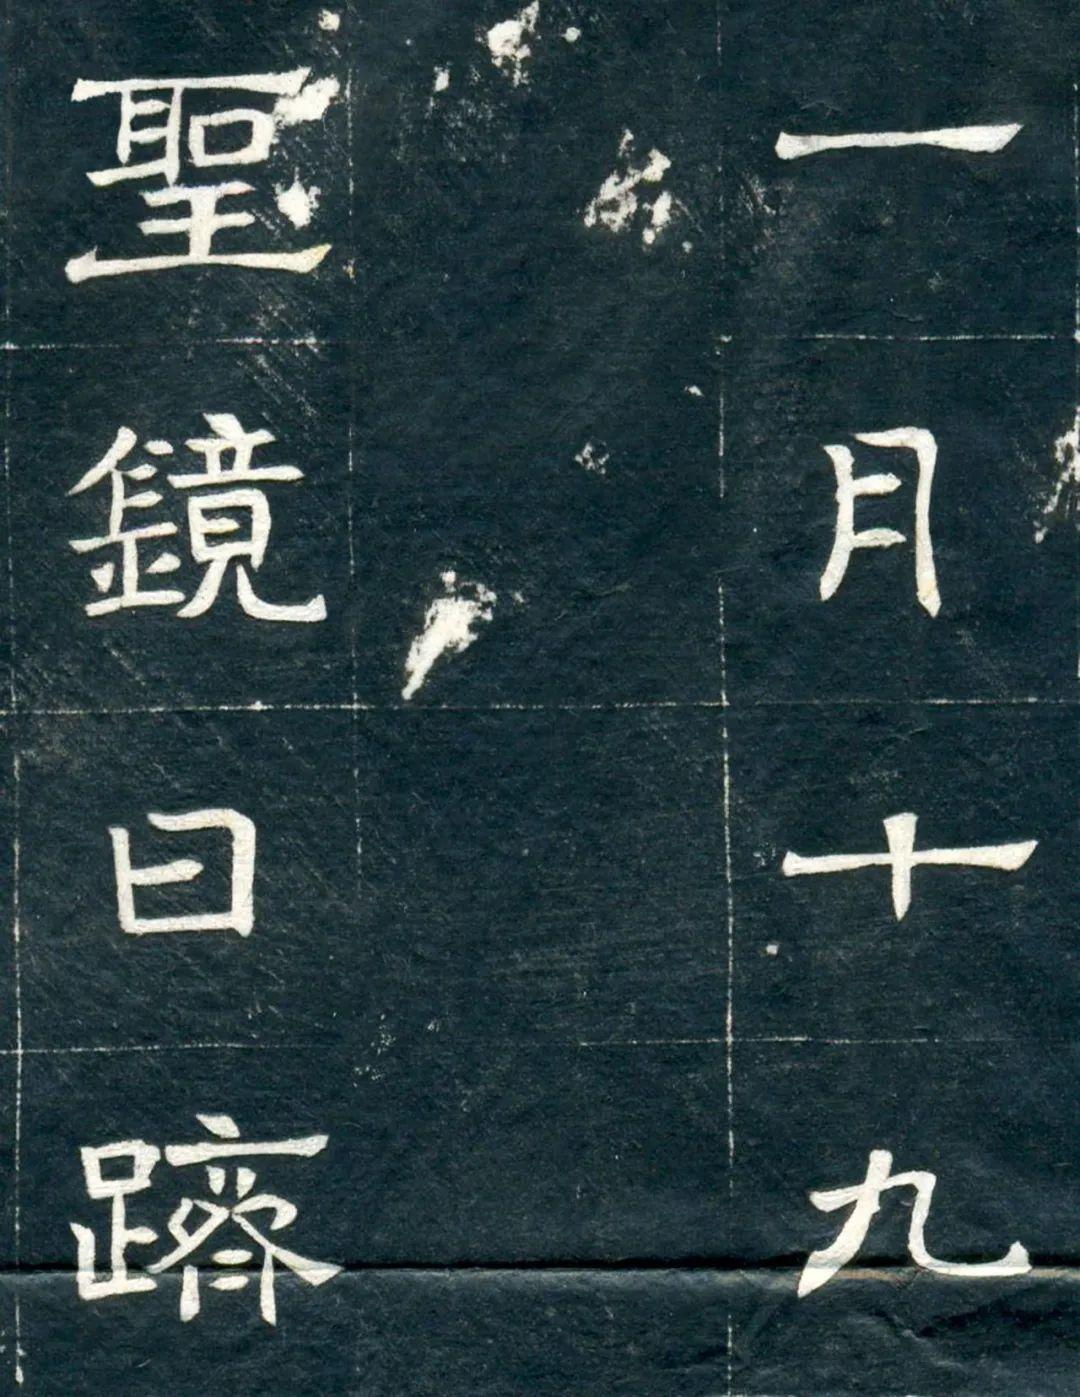 一月十九
聖鏡日躋